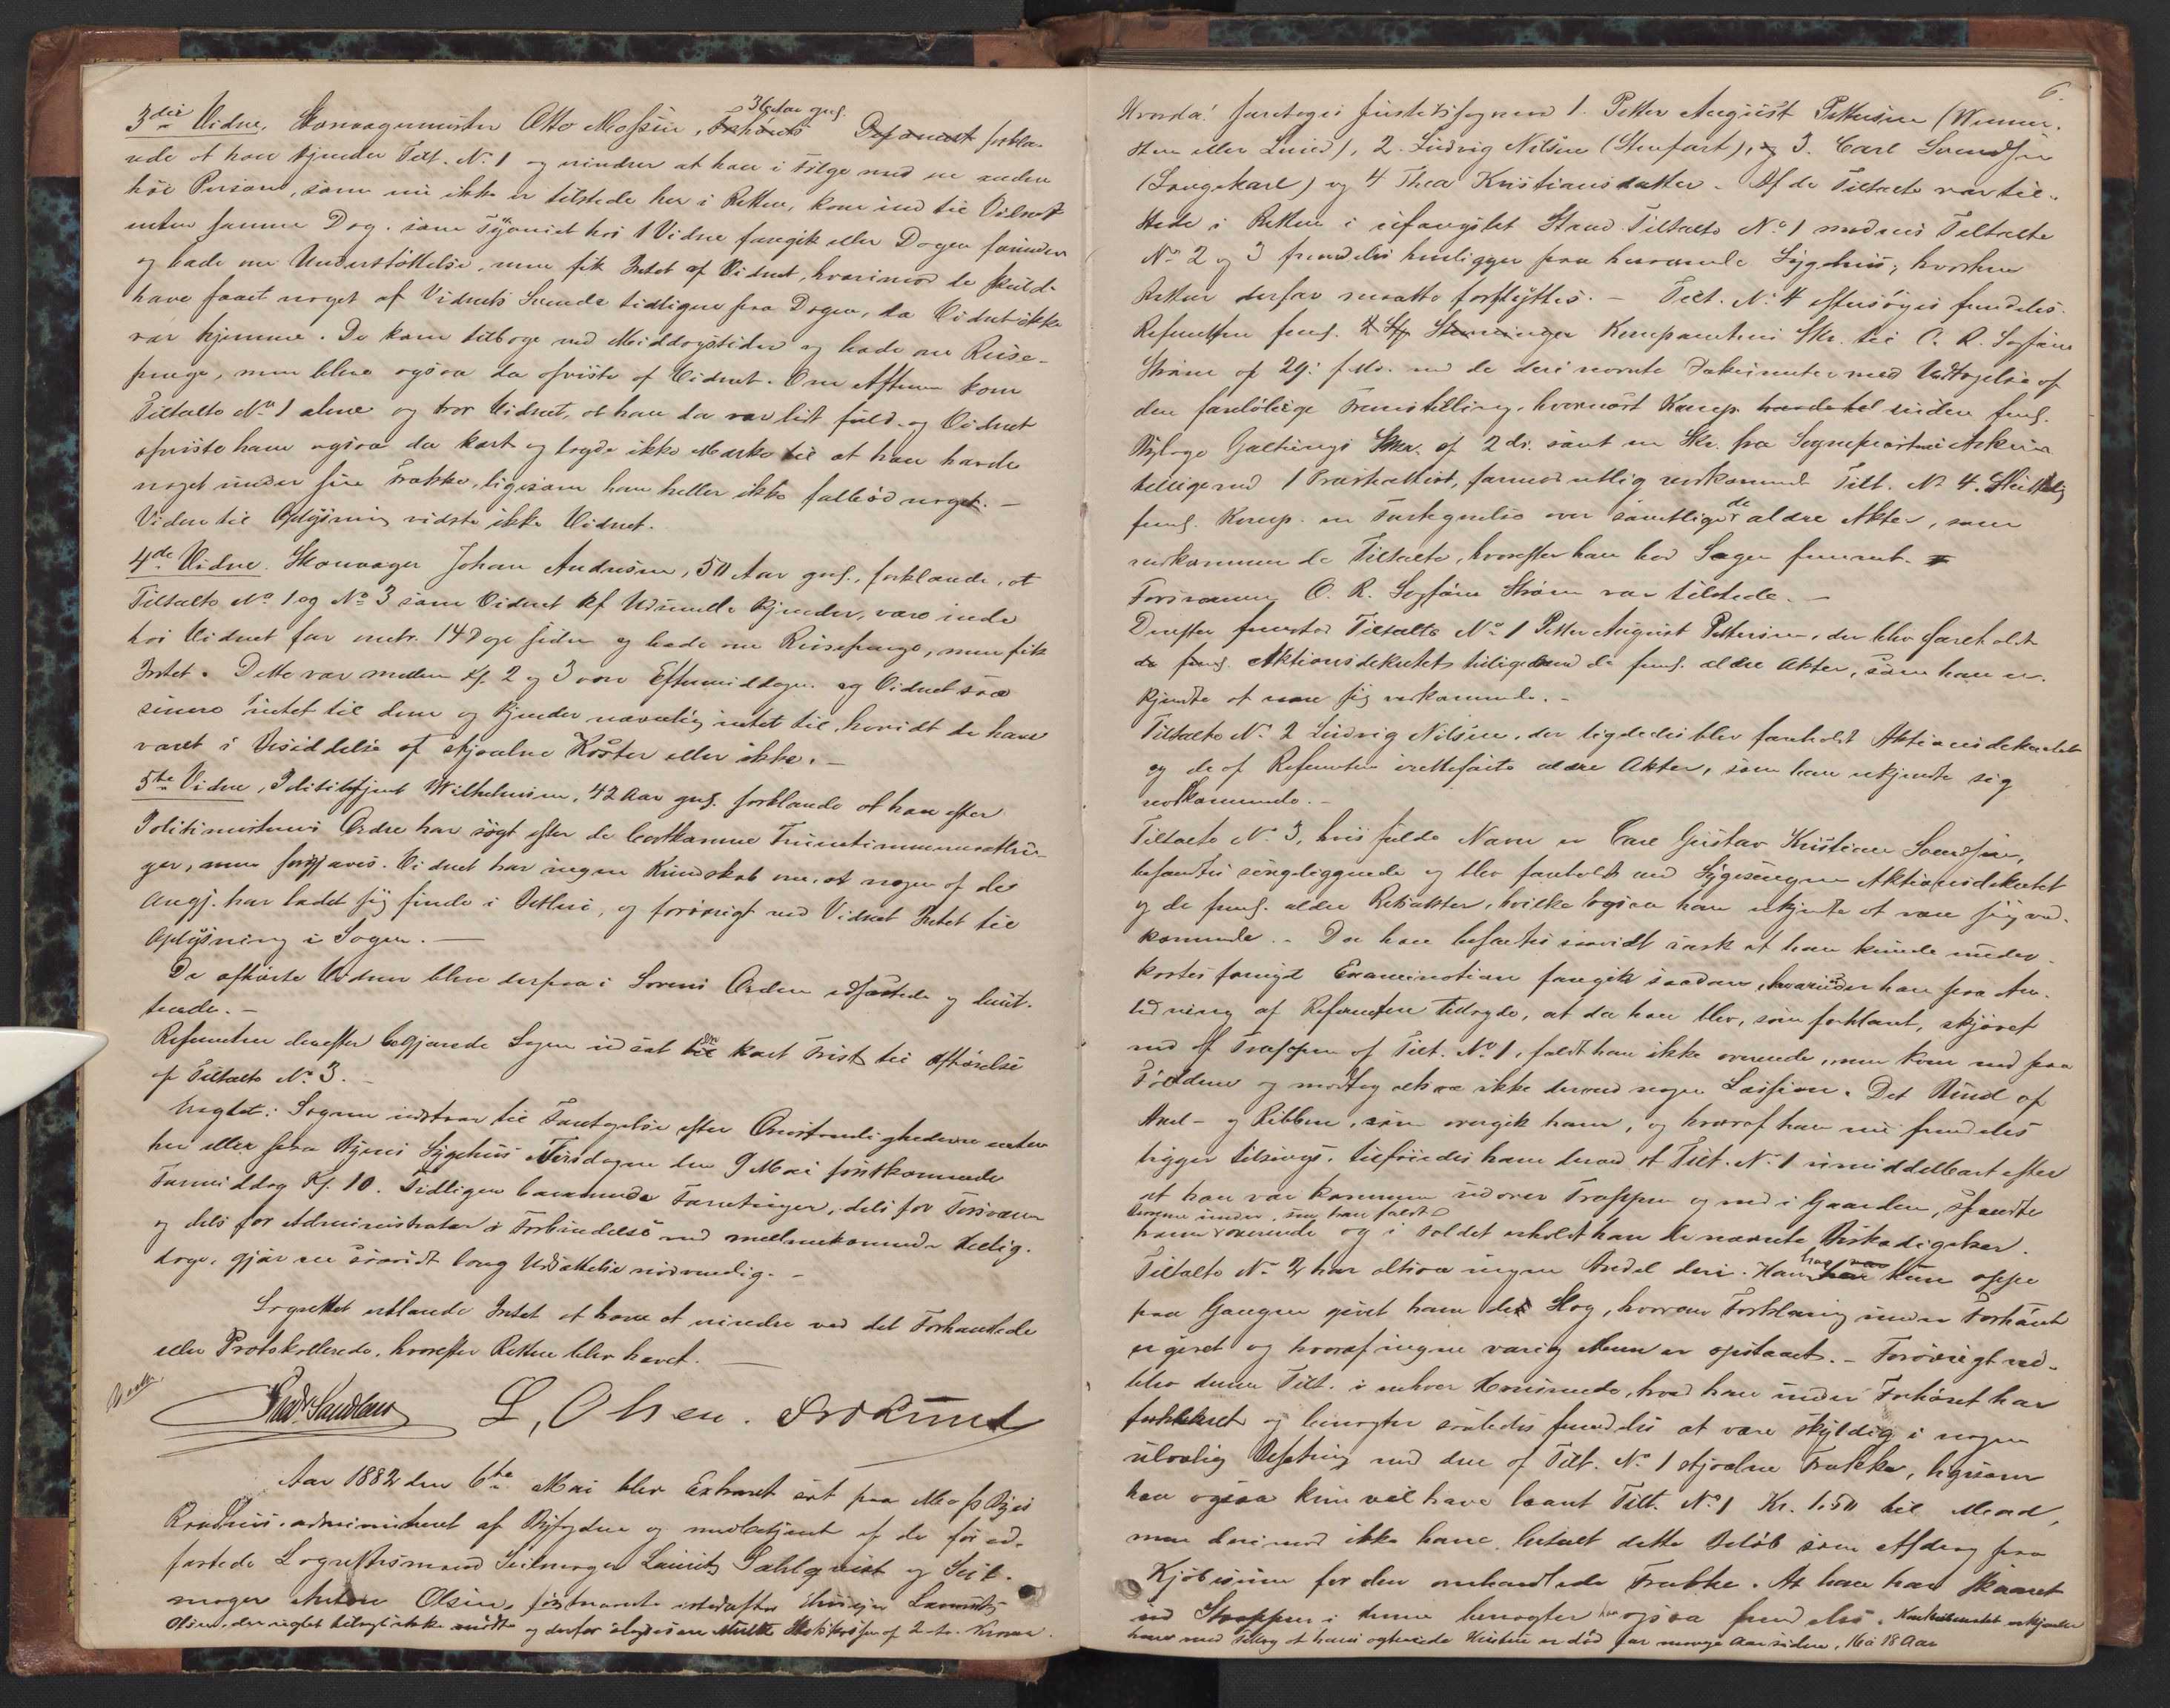 3die Vidne, Skomagermester Otto Mossin, 36 Aar gml. forkla-
rede at han kjender Tilt. No 1 og mindes at han i Følge med en anden
høi Person, som nu ikke er tilstede her i Retten, kom ind til Vidnet
enten samme Dag som Tyveriet hos 1 Vidne foregik eller Dagen forinden
og bade om Understøttelse, men fik Intet af Vidnet, hvorimod de skulde
have faaet noget af Vidnets Svende tidligere paa Dagen, da Vidnet ikke
var hjemme. De kom tilbage ved Middagstider og bade om Reise-
penge, men bleve ogsaa da afviste af Vidnet. Om Aftenen kom
Tiltalte No 1 alene og tror Vidnet, at han da var lidt fuld og Vidnet
afviste ham ogsaa da kort og lagde ikke Mærke til at han havde
noget under sin Frakke, ligesom han heller ikke falbød noget. —
Videre til Oplysning vidste ikke Vidnet.
4de Vidne. Skomager Johan Andresen, 50 Aar gml., forklarede, at
Tiltalte No 1 og No 3 som Vidnet af Udseende kjender, vare inde
hos Vidnet for omtr. 14 Dage siden og bade om Reisepenge, men fik
Intet. Dette var mellem Kl. 2 og 3 om Eftermiddagen og Vidnet saa
senere intet til dem og kjender navnlig intet til, hvorvidt de have
været i Besiddelse af stjaalne Koster eller ikke. —
5te Vidne, Politibetjent Wilhelmsen, 42 Aar gml. forklarede at han efter
Politimesterens Ordre har søgt efter de bortkomne
men forgjæves. Vidnet har ingen Kundskab om, at nogen af de
Angj. har ladet sig finde i og forøvrigt ved Vidnet Intet til
Oplysning i Sagen. —
De afhørte Vidner bleve derpaa i Lovens Orden edfæstede og dimit-
terede. —
Referenten derefter begjærede Sagen udsat en kort Frist til Afhørelse
af Tiltalte No 3. —
Eragtet: Sagen udstaar til Foretagelse efter Omstændighederne enten
her eller paa Byens Sygehus Tirsdagen den 9 Mai førstkommende
Formiddag Kl. 10. Tidligere berammede Forretninger, dels for Forsvareren
og dels for Administrator i Forbindelse med mellemkommende Hellig-
dage, gjør en saavidt lang Udsættelse nødvendig. —
Lagrettet erklærede Intet at have at erindre ved det Forhandlede
eller Protokollerede, hvorefter Retten blev hævet. —
L. Olsen.
Aar 1882 den 6te Mai blev Extraret sat paa Moss Byes
Raadhus, administreret af Byfogden og medbetjent af de før ed-
fæstede Lagrettesmænd Seilmager Lauritz Dahlqvist og Seil-
mager Anton Olsen, førstnævnte istedetfor
Olsen, der uagtet tilsagt ikke mødte og derfor
6.
Hvorda foretoges Justitssagen mod 1. Petter August Pettersen
2. Ludvig Nilsen (Stenfart), 3. Carl Svendsen
(Langekarl) og 4 Thea Kristiansdatter. Af de Tiltalte var til-
stede i Retten i ufængslet Stand Tiltalte No 1 medens Tiltalte
No 2 og 3 fremdeles henligger paa herværende Sygehus, hvorhen
Retten derfor maatte forflyttes. — Tilt. No 4 eftersøges fremdeles.
Referenten freml. Kompanitens Skr. til O. R. Sagfører
Strøm af 29. f. Md. med de deri nævnte Dokumenter med Undtagelse af
den foreløbige Fremstilling, hvornæst Komp. siden freml.
Byfoged Skr. af 2 ds. samt en Skr. fra Sognepresten i Askim
tilligemed 1 Præsteattest, formodentlig vedkommende Tilt. No 4.
freml. Komp. en Fortegnelse over samtlige de ældre Akter, som
vedkommer de Tiltalte, hvorefter han bad Sagen fremmet.
Forsvareren O. R. Sagfører Strøm var tilstede. —
Derefter fremstod Tiltalte No 1 Petter August Pettersen, der blev foreholdt
freml. Aktionsdekretet tilligemed de freml. ældre Akter, som han er-
kjendte at være sig vedkommende. —
Tiltalte No 2 Ludvig Nilsen, der ligeledes blev foreholdt Aktionsdekretet
og de af Referenten irettelagte ældre Akter, som han erkjendte sig
vedkommende. —
Tiltalte No 3, hvis fulde Navn er Carl Gustav Kristian Svendsen,
befandtes sengeliggende og blev foreholdt ved Sygesengen Aktionsdekretet
og de freml. ældre Retsakter, hvilke ogsaa han erkjendte at være sig ved-
kommende. — Da han befandtes saavidt rask at han kunde under-
kastes fornyet Examination foregik saadan, hvorunder han paa An-
ledning af Referenten tilsagde, at da han blev, som forklaret, skjøvet
ned af Trappen af Tilt. No 1, faldt han ikke overende, men kom ned paa
Fødderne og modtog altsaa ikke derved nogen Læsion. Det Brud af
Axel- og Ribben, som overgik ham, og hvoraf han nu fremdeles
ligger tilsengs, tilføiedes ham derved at Tilt. No 1 umiddelbart efter
at han var kommen ud over Trappen og ned i Gaarden, spændte
benene under, saa han faldt
ham overende og i Faldet erholdt han de nævnte Beskadigelser.
Tiltalte No 2 har altsaa ingen Andel deri. Han har kun oppe
paa Gangen givet ham det Slag, hvorom Forklaring under Forhøret
er givet og hvoraf ingen varig Men er opstaaet. — Forøvrigt ved-
blev denne Tilt. i enhver Henseende, hvad han under Forhøret har
forklaret og benægter saaledes fremdeles at være skyldig i nogen
ulovlig Befatning med den af Tilt. No 1 stjaalne Frakke, ligesom
han ogsaa kun vil have laant Tilt. No 1 Kr. 1.50 til Mad,
men derimod ikke have betalt dette Beløb som Afdrag paa
Kjøbesummen for den omhandlede Frakke. At han har skaaret
ud Stroppen i denne benægter han ogsaa fremdeles.
at hans ogtevede Hustru er død for mange Aar siden, 16 à 18 Aar